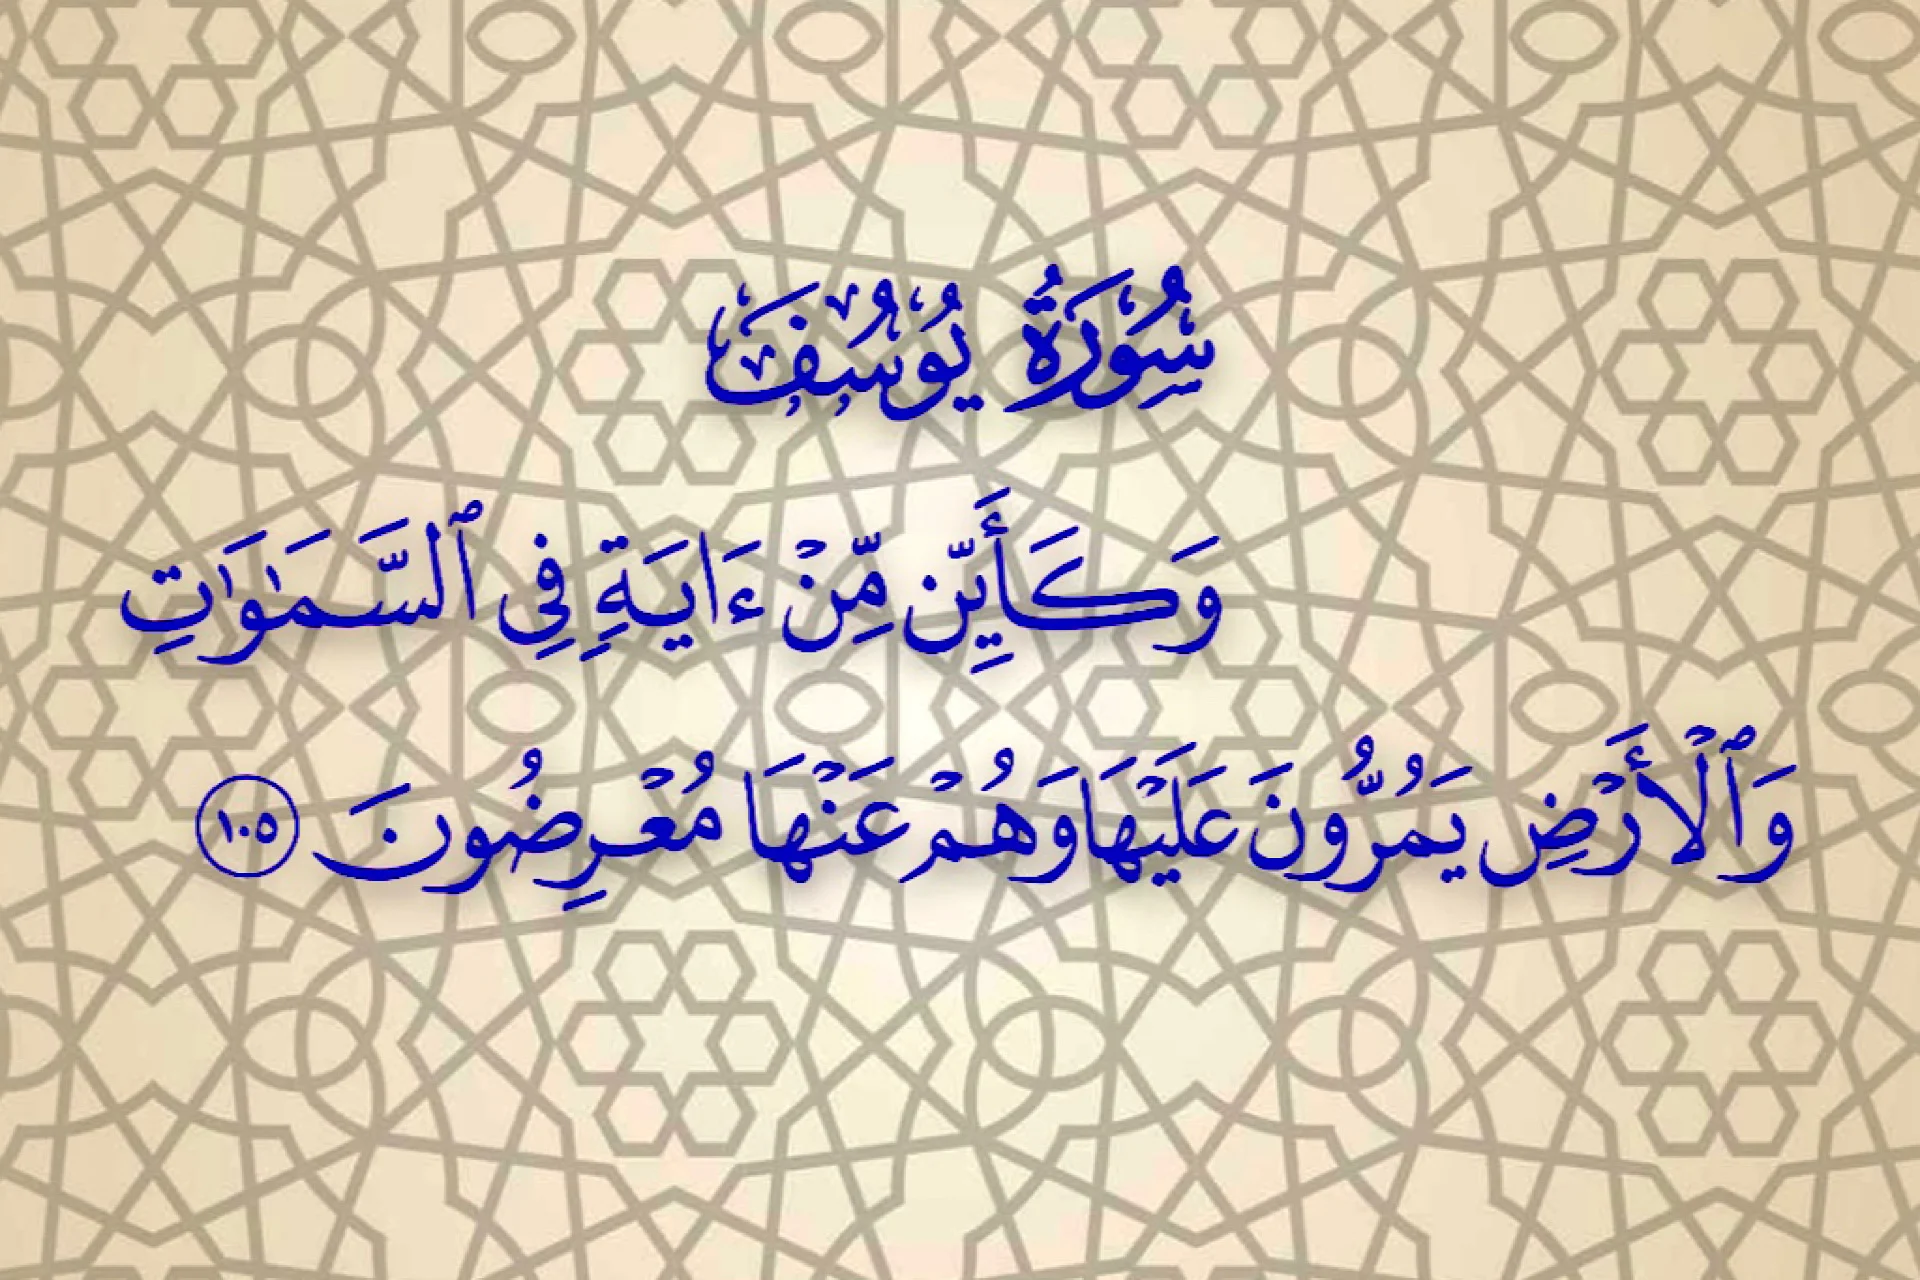 سُورَةُ يُوسُفَ
وَكَأَيِّن مِّنْ ءَايَةٍ فِي ٱلسَّمَٰوَٰتِ
وَٱلْأَرْضِ يَمُرُّونَ عَلَيْهَا وَهُمْ عَنْهَا مُعْرِضُونَ ١٠٥